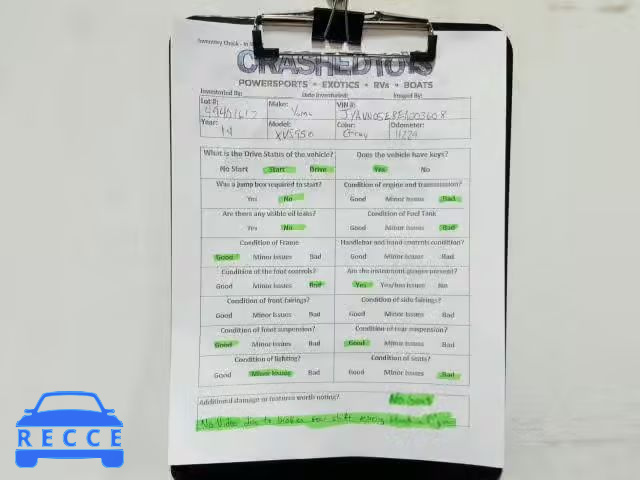 Inventory Check - In
CRASHEDTOYS
POWERSPORTS • EXOTICS • RVs • BOATS
Inventoried By: Date Inventoried: Imaged By:
Lot #: Make: VIN #:
Year: Model: Color: Odometer:
14 XVS950 Gray 11224
What is the Drive Status of the vehicle? Does the vehicle have keys?
No Start Start Drive Yes No
Was a jump box required to start? Condition of engine and transmission?
Yes No Good Minor Issues Bad
Are there any visible oil leaks? Condition of Fuel Tank
Yes No Good Minor Issues Bad
Condition of Frame Handlebar and hand controls condition?
Good Minor Issues Bad Good Minor Issues Bad
Condition of the foot controls? Are the instrument gauges present?
Good Minor Issues Bad Yes Yes/has issues No
Condition of front fairings? Condition of side fairings?
Good Minor Issues Bad Good Minor Issues Bad
Condition of front suspension? Condition of rear suspension?
Good Minor Issues Bad Good Minor Issues Bad
Condition of lighting? Condition of Seats?
Good Minor Issues Bad Good Minor Issues Bad
Additional damage or features worth noting? No Seat
No Video due to broken shift
RECCE